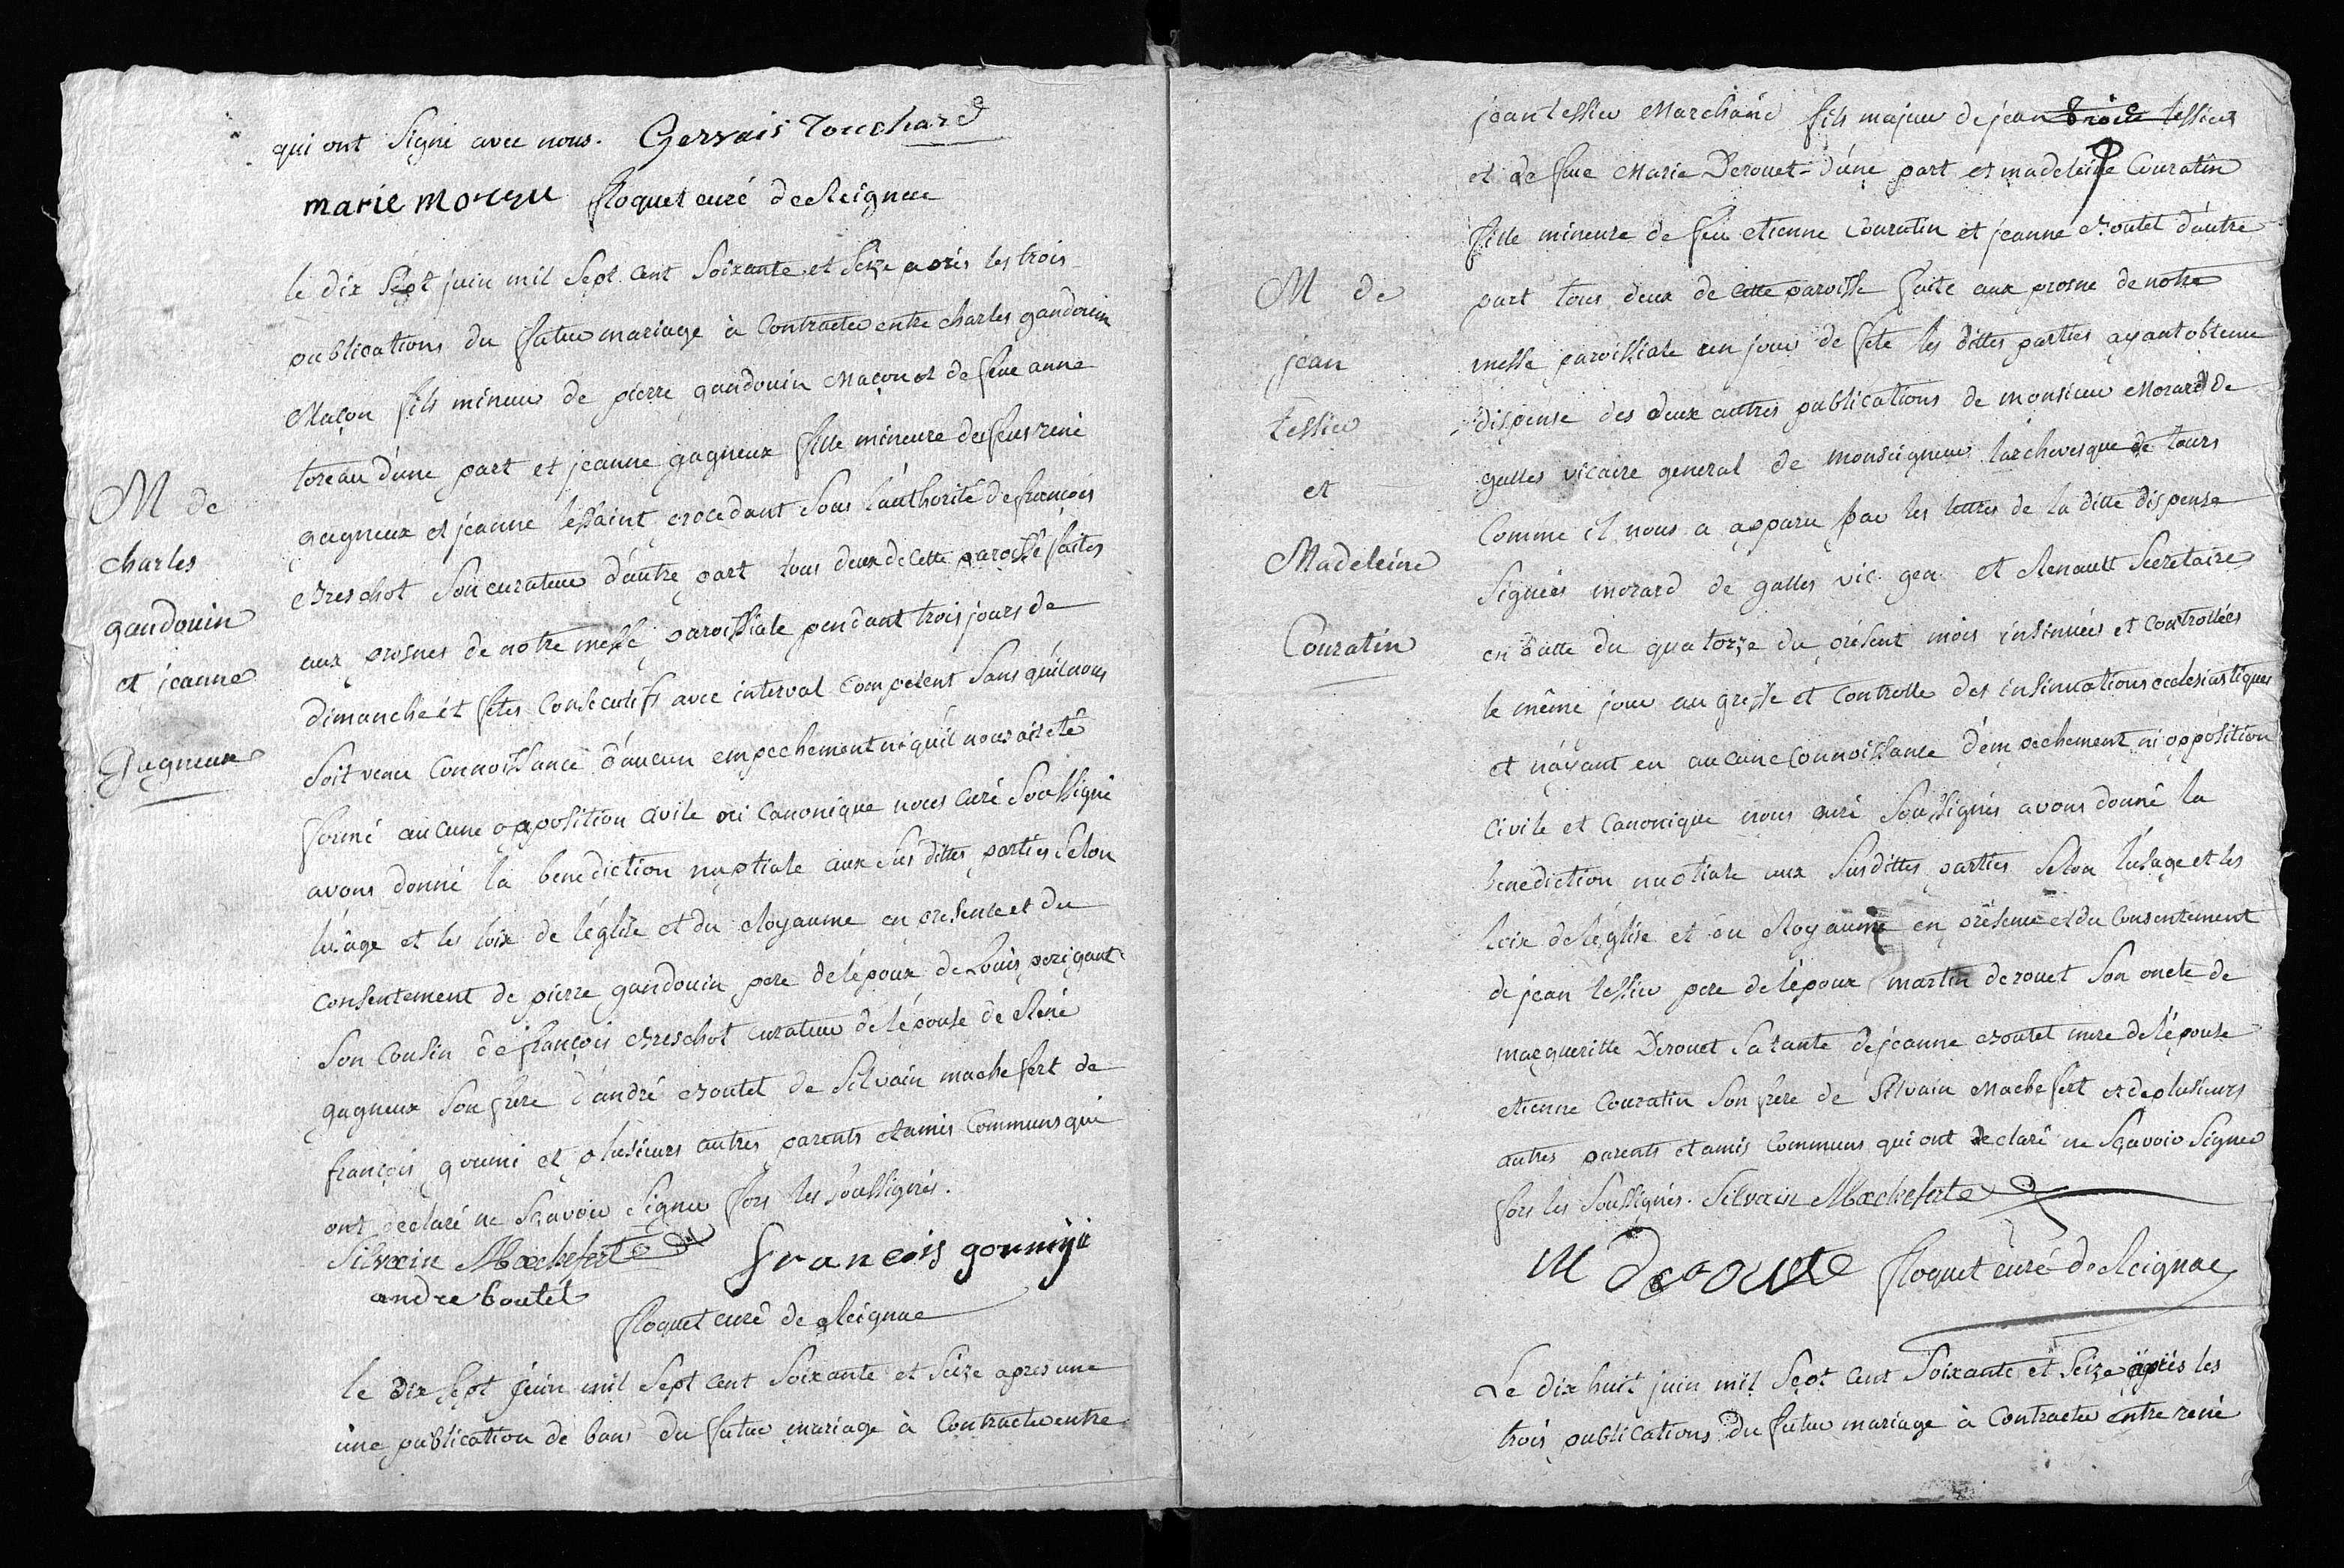 qui ont signé avec nous. Gervais Touchard
marie morou floquet curé de Reignac
le dix sept juin mil sept cent soixante et seize après les trois
publications du futur mariage à contracter entre charles gandouin
Maçon fils mineur de pierre gandouin Maçon et de feue anne
toreau d'une part et jeanne gagneux fille mineure de feus réné
gagneux et jeanne lessaint procedant sous l'authorité de françois
Breschot son curateur d'autre part tous deux de cette paroisse faites
aux prosnes de notre messe paroissiale pendant trois jours de
dimanche et fêtes consecutifs avec interval competent sans qu'il nous
soit venu connoissance d'aucun empechement ni qu'il nous ait eté
formé aucune opposition civile ni canonique nous curé soussigné
avons donné la benediction nuptiale aux sus dittes parties selon
l'usage et les loix de l'église et du Royaume en presence et du
consentement de pierre gandouin pere de l'époux de Louis perigault
son cousin de françois Breschot curateur de l'épouse de Réné
gagneux son frère d'andré Boutet de Silvain machefert de
françois goumi et plusieurs autres parents et amis communs qui
ont declaré ne sçavoir signer fors les soussignés.
Silvain Machefert françois goumy
andre boutet
floquet curé de Reignac
le dix sept juin mil sept cent soixante et seize apres une
une publication de bans du futur mariage à contracter entre
M de
charles
gandouin
et jeanne
Gagneux
jean tessier Marchand fils majeur de jean tessier
et de feue Marie Derouet d'une part et madeleine Couratin
fille mineure de feu etienne Couratin et jeanne Boutet d'autre
part tous deux de cette paroisse faite aux prosne de notre
messe paroissiale un jour de fête les dittes parties ayant obtenu
dispense des deux autres publications de monsieur Morard de
galles vicaire general de monseigneur l'archevesque de tours
Comme il nous a apparu par les lettres de la ditte dispense
signées morard de galles vic. gen. et Renault Secretaire
en datte du quatorze du présent mois insinuées et controllées
le même jour au greffe et controlle des insinuations ecclesiastiques
et n'ayant eu aucune connoissance d'empechement ni opposition
civile et canonique nous curé soussignés avons donné la
benediction nuptiale aux susdittes parties selon l'usage et les
loix de l'église et du Royaume en présence et du consentement
de jean tessier pere de l'époux martin derouet son oncle de
margueritte Derouet sa tante de jeanne Boutet mere de l'épouse
etienne Couratin son frère de Silvain Machefert et de plusieurs
autres parents et amis communs qui ont declaré ne sçavoir signer
fors les soussignés. Silvain Machefert
M derouet floquet curé de Reignac
Le dix huit juin mil sept cent soixante et seize après les
trois publications du futur mariage à contracter entre réné
M de
jean
tessier
et
Madeleine
Couratin